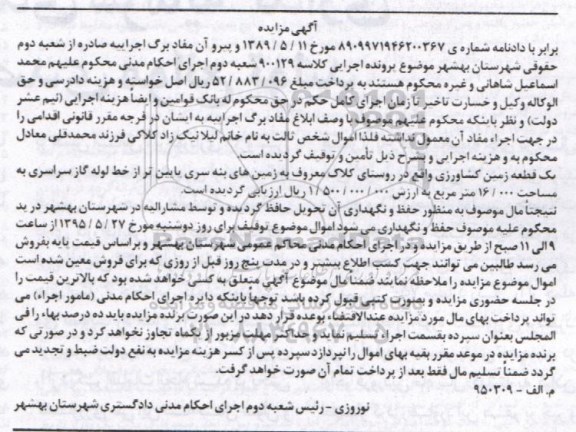 آگهی مزایده
برابر با دادنامه شماره ی ۸۹۰۹۹۷۱۹۴۶۲۰۰۳۶۷ مورخ ۱۱ / ۵ / ۱۳۸۹ و پیرو آن مفاد برگ اجراییه صادره از شعبه دوم
حقوقی شهرستان بهشهر موضوع پرونده اجرایی کلاسه ۹۰۰۱۲۹ شعبه دوم اجرای احکام مدنی محکوم علیهم محمد
اسماعیل شاهانی و غیره محکوم هستند به پرداخت مبلغ ۰۹۶ / ۸۸۳ / ۵۲ ریال اصل خواسته و هزینه دادرسی و حق
الوکاله وکیل و خسارت تاخیر تا زمان اجرای کامل حکم در حق محکوم له بانک قوامین و ایضاً هزینه اجرایی (نیم عشر
دولت) و نظر باینکه محکوم علیهم موصوف با وصف ابلاغ مفاد برگ اجراییه به ایشان در فرجه مقرر قانونی اقدامی را
در جهت اجراء مفاد آن معمول نداشته فلذا اموال شخص ثالث به نام خانم لیلا نیک زاد کلاکی فرزند محمدقلی معادل
محکوم به و هزینه اجرایی و بشرح ذیل تأمین و توقیف گردیده است.
یک قطعه زمین کشاورزی واقع در روستای کلاک معروف به زمین های پنه سری پایین تر از خط لوله گاز سراسری به
مساحت ۰۰۰ / ۱۶ متر مربع به ارزش ۰۰۰ / ۰۰۰ / ۵۰۰ / ۱ ریال ارزیابی گردیده است.
نتیجتاً مال موصوف به منظور حفظ و نگهداری آن تحویل حافظ گردیده و توسط مشارالیه در شهرستان بهشهر در ید
محکوم علیه موصوف حفظ و نگهداری می شود اموال موضوع توقیف برای روز دوشنبه مورخ ۲۷ / ۵ / ۱۳۹۵ از ساعت
۹ الی ۱۱ صبح از طریق مزایده و در اجرای احکام مدنی محاکم عمومی شهرستان بهشهر و براساس قیمت پایه بفروش
می رسد طالبین می توانند جهت کسب اطلاع بیشتر و در مدت پنج روز قبل از روزی که برای فروش معین شده است
اموال موضوع مزایده را ملاحظه نمایند ضمناً مال موضوع آگهی متعلق به کسی خواهد شد بود که بالاترین قیمت را
در جلسه حضوری مزایده و بصورت کتبی قبول کرده باشد توجهاً باینکه دایره اجرای احکام مدنی (مامور اجراء) می
تواند پرداخت بهای مال مورد مزایده عندالاقتضاء بوعده قرار دهد در این صورت برنده مزایده باید ده درصد بهاء را فی
المجلس بعنوان سپرده بقسمت اجراء تسلیم نماید و حداکثر مهلت مزبور از یکماه تجاوز نخواهد کرد و در صورتی که
برنده مزایده در موعد مقرر بقیه بهای اموال را نپردازد سپرده پس از کسر هزینه مزایده به نفع دولت ضبط و تجدید می
گردد ضمناً تسلیم مال فقط بعد از پرداخت تمام آن صورت خواهد گرفت.
م. الف - ۹۵۰۲۰۴۰۳
نوروزی - رئیس شعبه دوم اجرای احکام مدنی دادگستری شهرستان بهشهر